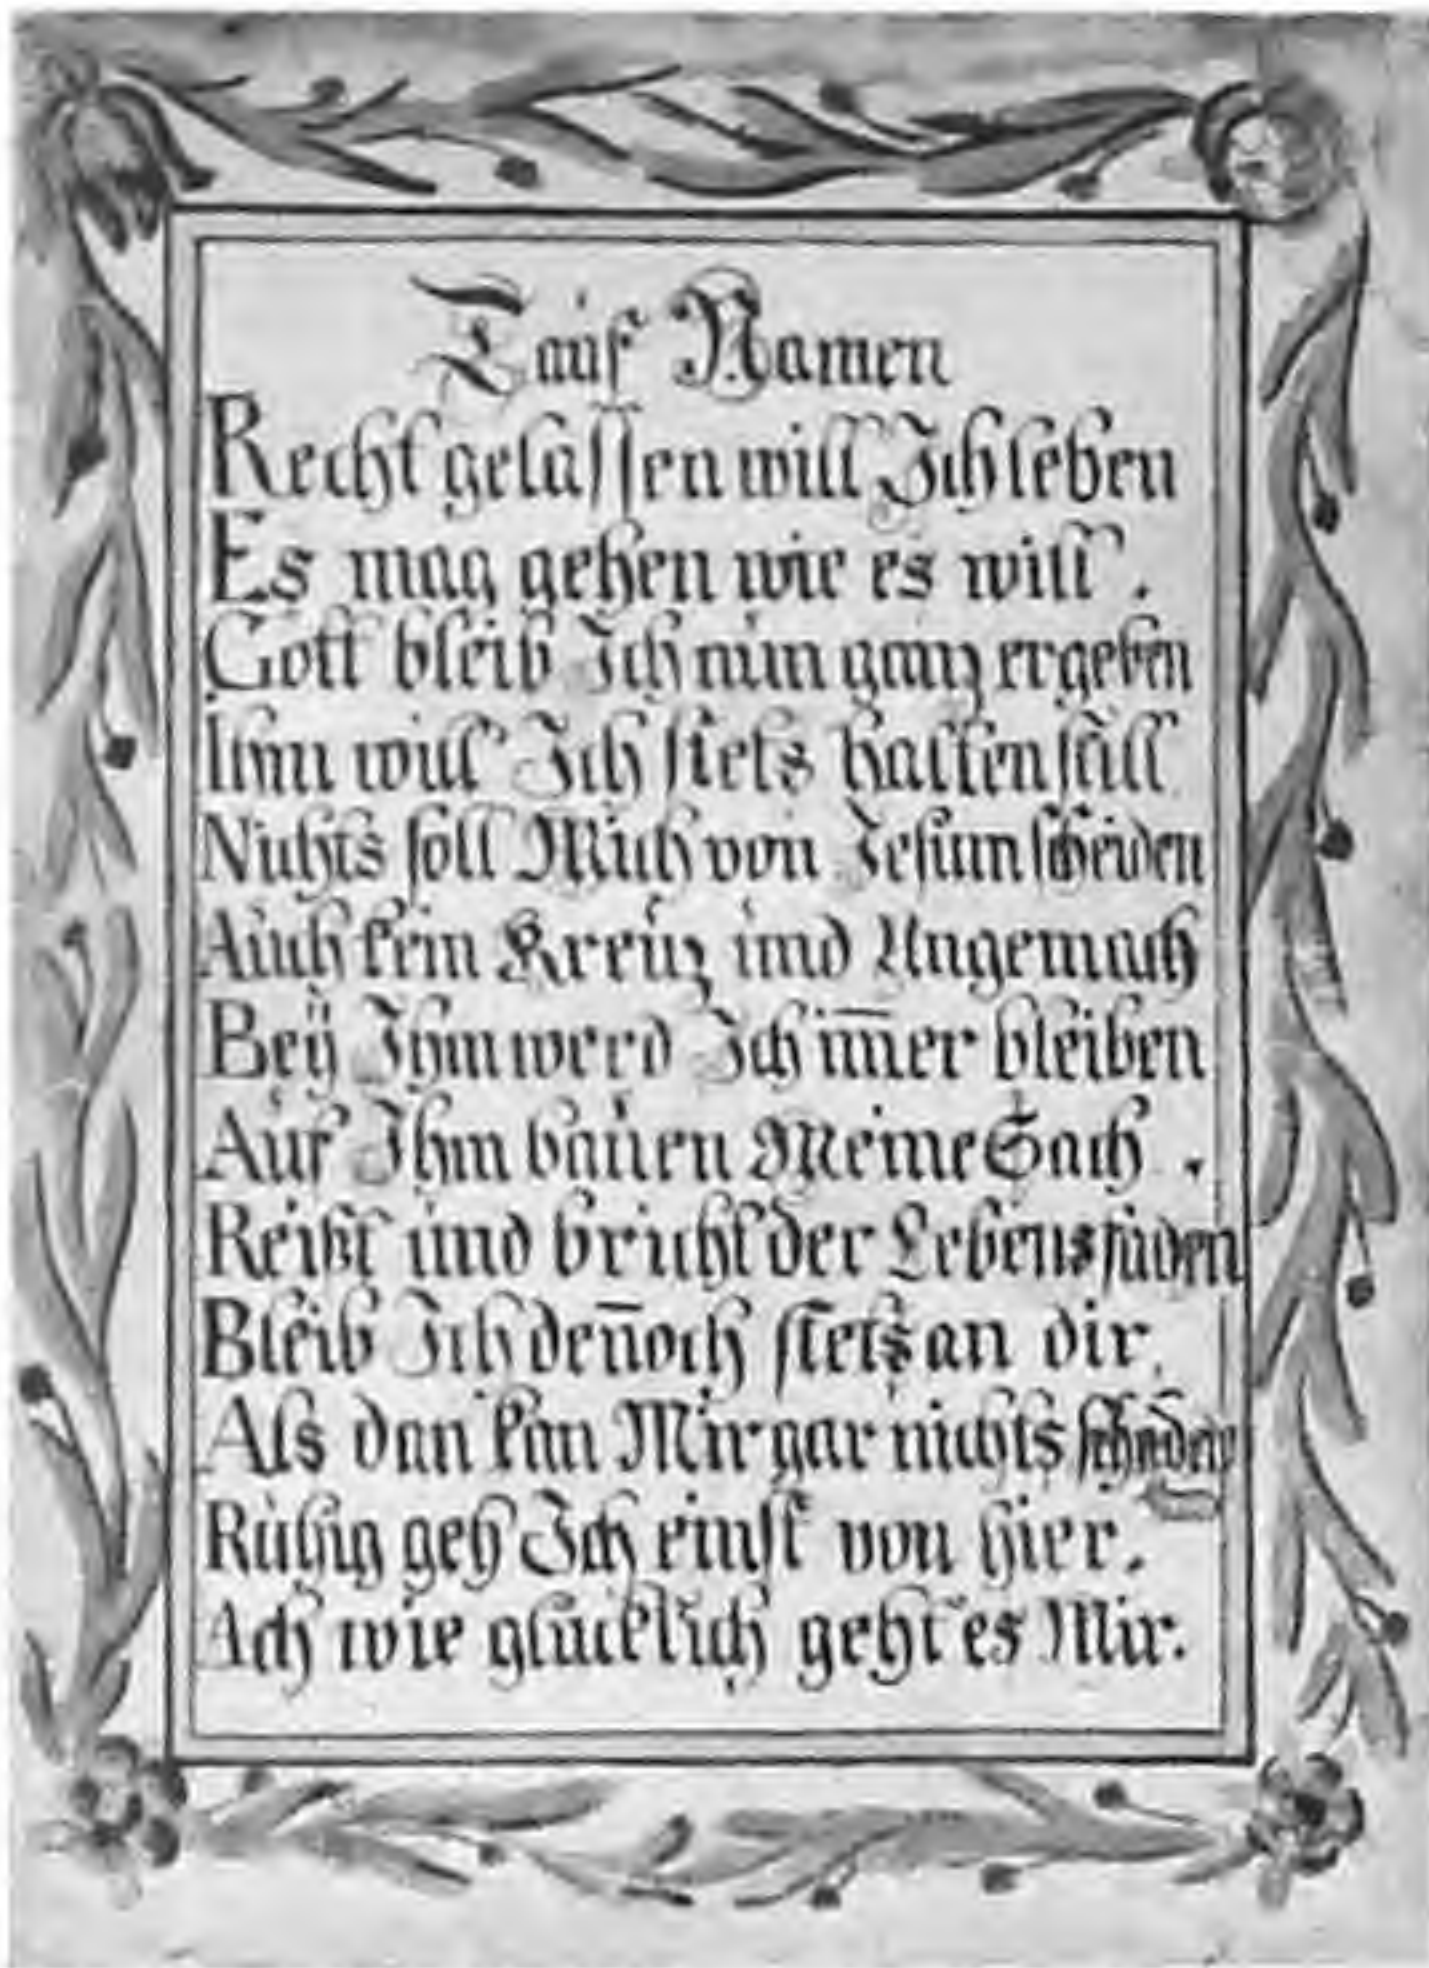 Tauf Namen
Recht gelassen will Ich leben
Es mag gehen wie es will.
Gott bleib Ich nun ganz ergeben
Ihm will Ich stets halten still
Nichts soll Mich von Jesum scheiden
Auch kein Kreuz und Ungemach
Beÿ Ihm werd Ich im̅er bleiben
Auf Ihm bauen Meine Sach.
Reißt und bricht der Lebensfaden
Bleib Ich den̅och stets an dir,
Als dan kan Mir gar nichts schaden
Ruhig geh Ich einst von hier.
Ach wie glücklich geht es Mir.